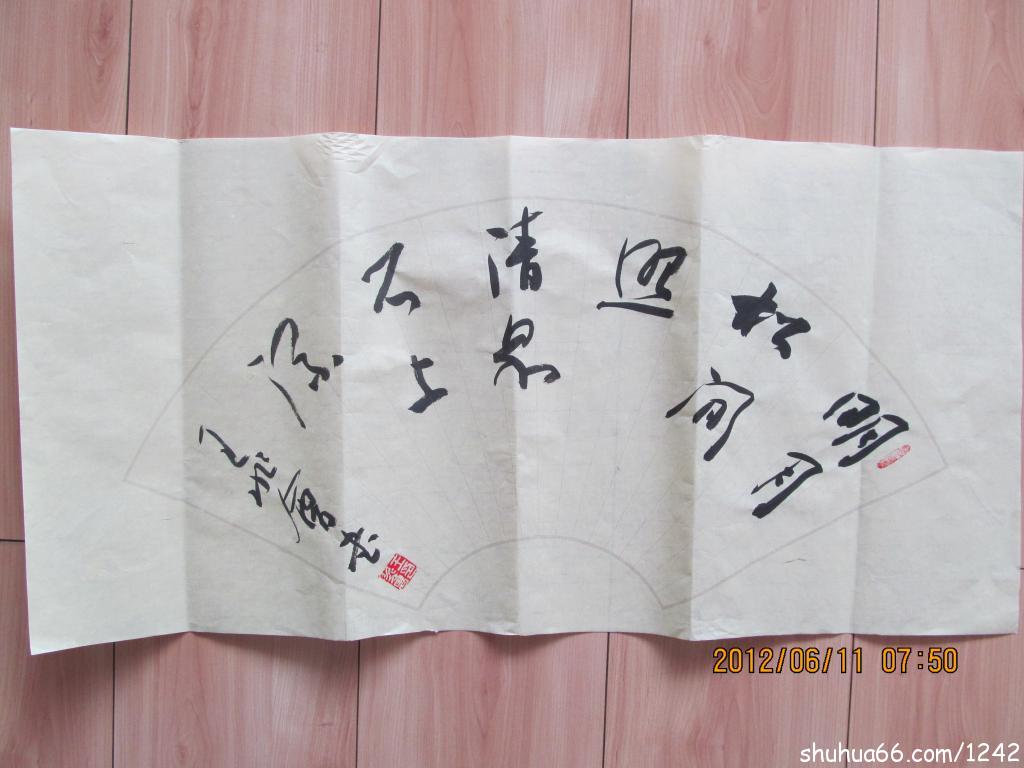 明月
松间
照
清泉
石上
流
2012/06/11 07:50
shuhua66.com/1242